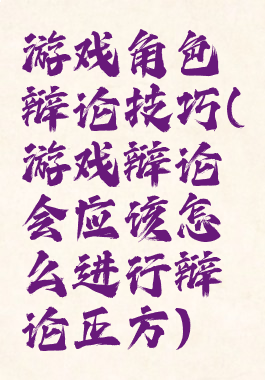 游戏角色
辩论技巧(
游戏辩论
会应该怎
么进行辩
论正方)